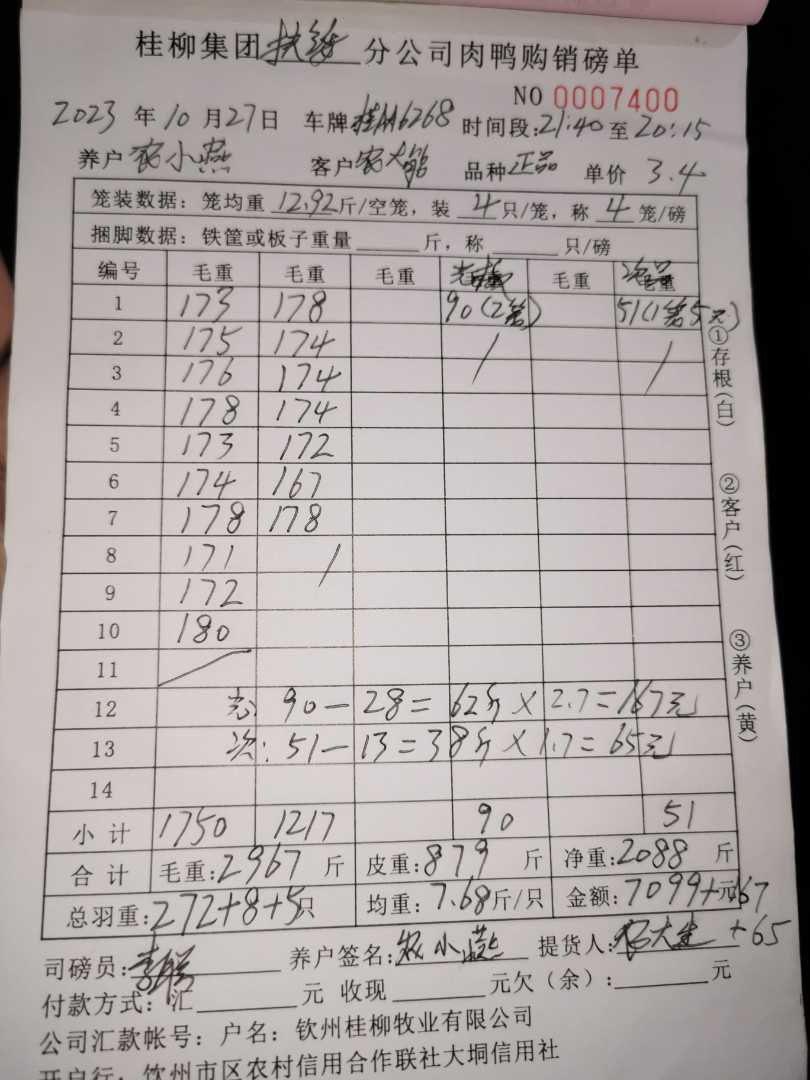 桂柳集团扶绥分公司肉鸭购销磅单
NO 0007400
2023年10月27日 车牌桂 6268 时间段:21:40至20:15
养户农小燕 客户农大 品种正品 单价3.4
笼装数据:笼均重12.92斤/空笼,装4只/笼,称4笼/磅
捆脚数据:铁筐或板子重量 斤,称 只/磅
编号 毛重 毛重 毛重 毛重 次品
1 173 178 90(2笼) 51(1笼5元)
2 175 174 /
3 176 174 /
4 178 174
5 173 172
6 174 167
7 178 178
8 171 /
9 172
10 180
11
12 90-28=62斤×2.7=167元
13 次:51-13=38斤×1.7=65元
14
小计 1750 1217 90 51
合计 毛重:2967斤 皮重:879斤 净重:2088斤
总羽重:272+8+5只 均重:7.68斤/只 金额:7099+元167
+65
司磅员: 养户签名:农小燕 提货人:农大
付款方式:汇 元 收现 元欠(余): 元
公司汇款帐号:户名:钦州桂柳牧业有限公司
开户行:钦州市区农村信用合作联社大垌信用社
①存根(白)
②客户(红)
③养户(黄)